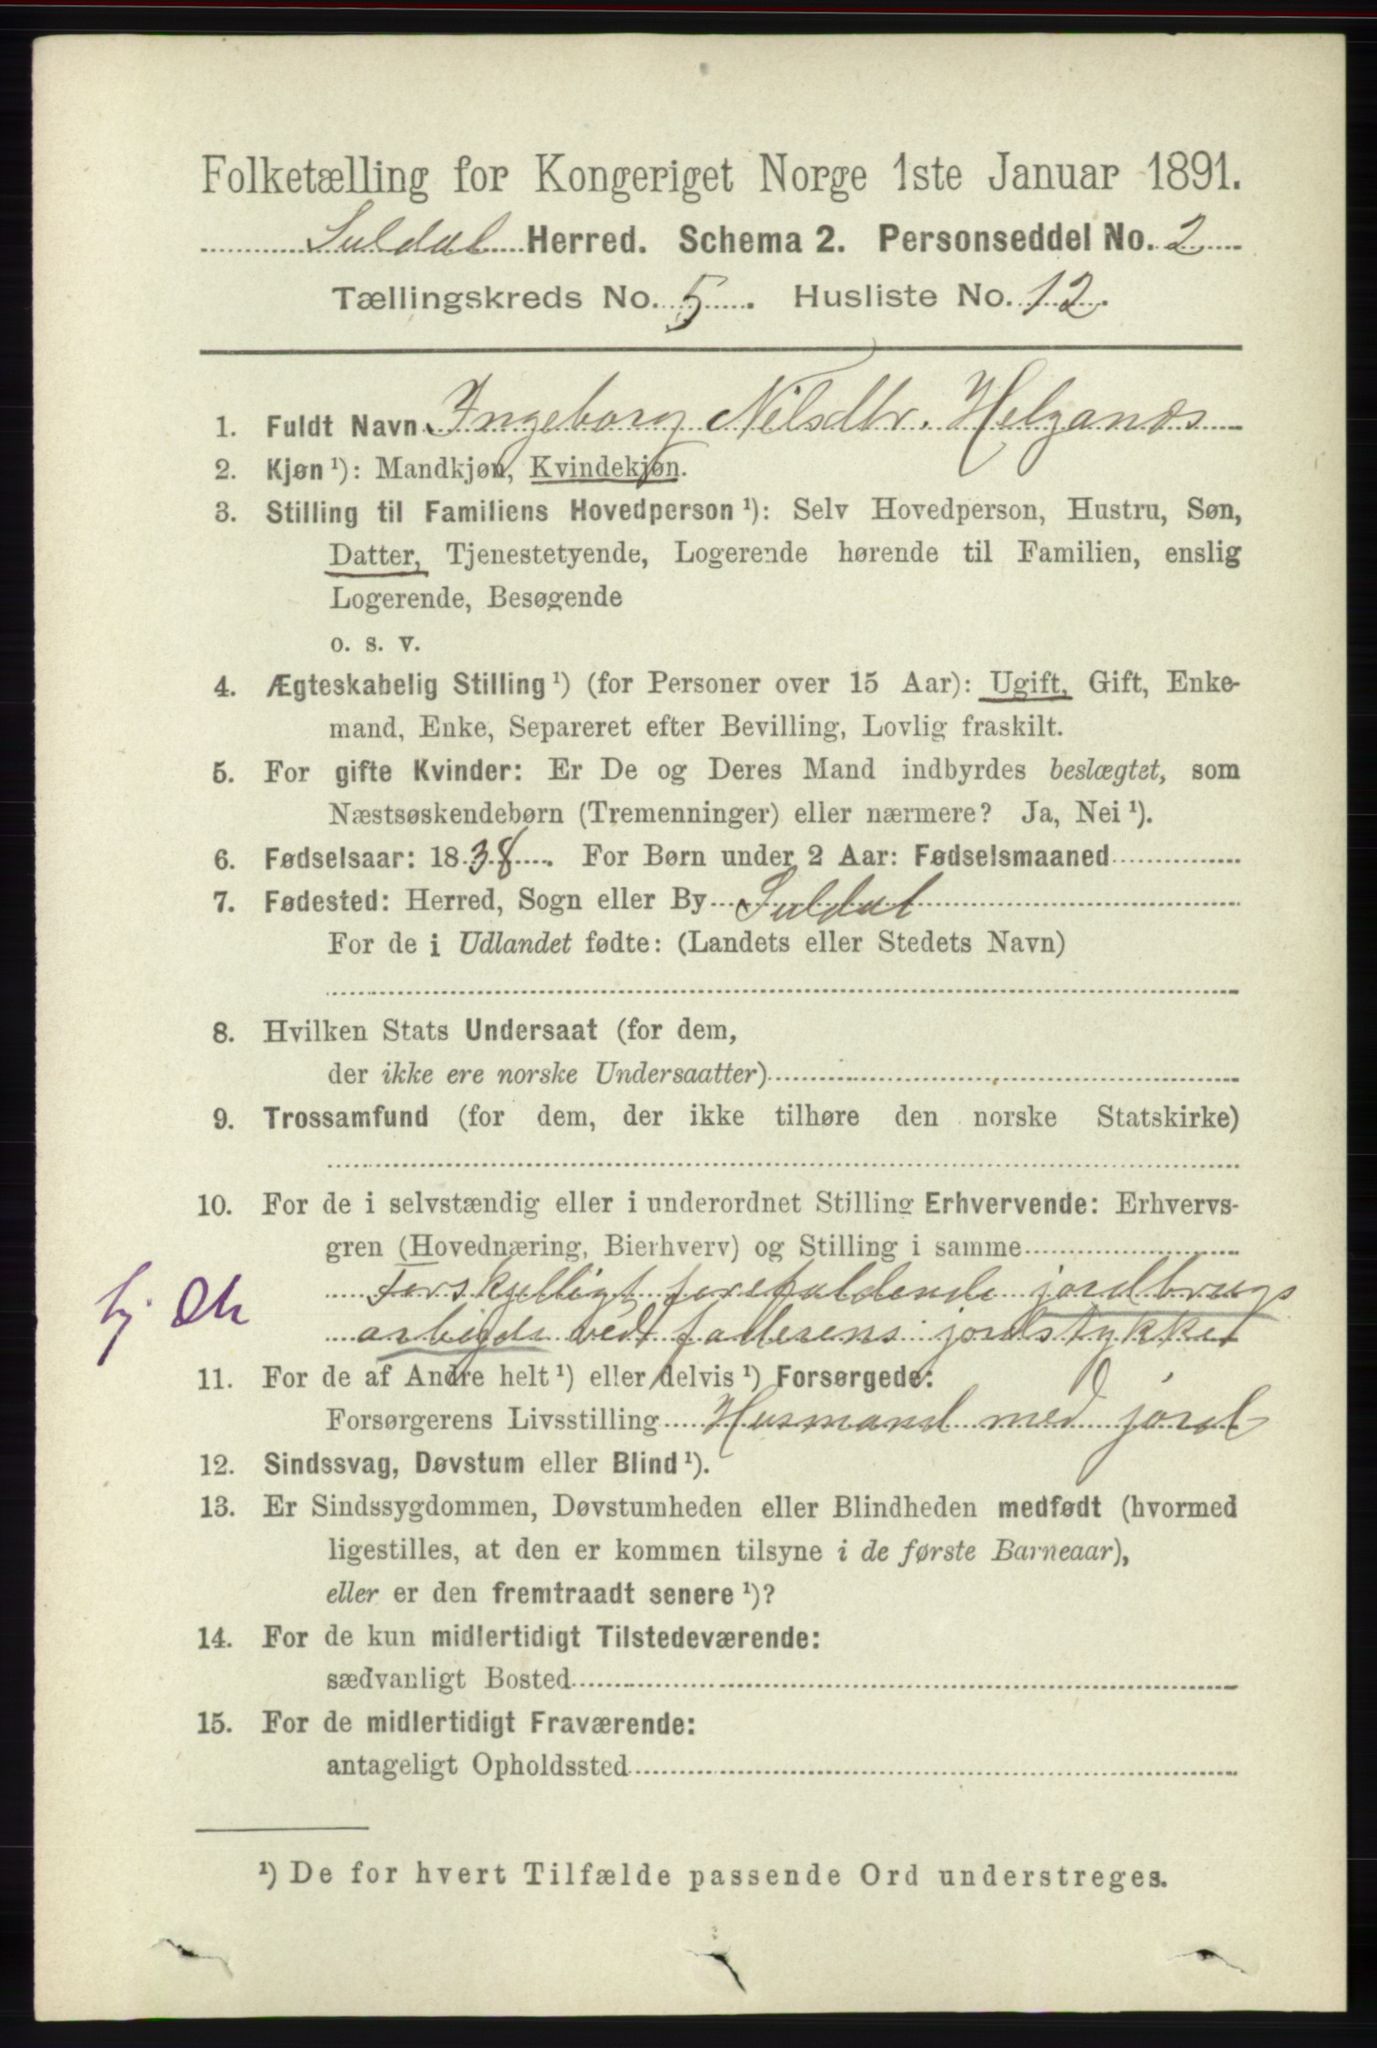 Folketælling for Kongeriget Norge 1ste Januar 1891.
Suldal Herred. Schema 2. Personseddel No. 2
Tællingskreds No. 5. Husliste No. 12.
1. Fuldt Navn Ingeborg Nilsdtr. Helganæs
2. Kjøn ¹): Mandkjøn, Kvindekjøn.
3. Stilling til Familiens Hovedperson ¹): Selv Hovedperson, Hustru, Søn,
Datter, Tjenestetyende, Logerende hørende til Familien, enslig
Logerende, Besøgende
o. s. v.
4. Ægteskabelig Stilling ¹) (for Personer over 15 Aar): Ugift, Gift, Enke-
mand, Enke, Separeret efter Bevilling, Lovlig fraskilt.
5. For gifte Kvinder: Er De og Deres Mand indbyrdes beslægtet, som
Næstsøskendebørn (Tremenninger) eller nærmere? Ja, Nei ¹).
6. Fødselsaar: 1838. For Børn under 2 Aar: Fødselsmaaned
7. Fødested: Herred, Sogn eller By Suldal
For de i Udlandet fødte: (Landets eller Stedets Navn)
8. Hvilken Stats Undersaat (for dem,
der ikke ere norske Undersaatter)
9. Trossamfund (for dem, der ikke tilhøre den norske Statskirke)
10. For de i selvstændig eller i underordnet Stilling Erhvervende: Erhvervs-
gren (Hovednæring, Bierhverv) og Stilling i samme
Forskjelligt forefaldende jordbrugs
arbeide ved faderens jordstykke
11. For de af Andre helt ¹) eller delvis ¹) Forsørgede:
Forsørgerens Livsstilling Husmand med jord
12. Sindssvag, Døvstum eller Blind ¹).
13. Er Sindssygdommen, Døvstumheden eller Blindheden medfødt (hvormed
ligestilles, at den er kommen tilsyne i de første Barneaar),
eller er den fremtraadt senere ¹)?
14. For de kun midlertidigt Tilstedeværende:
sædvanligt Bosted
15. For de midlertidigt Fraværende:
antageligt Opholdssted
¹) De for hvert Tilfælde passende Ord understreges.